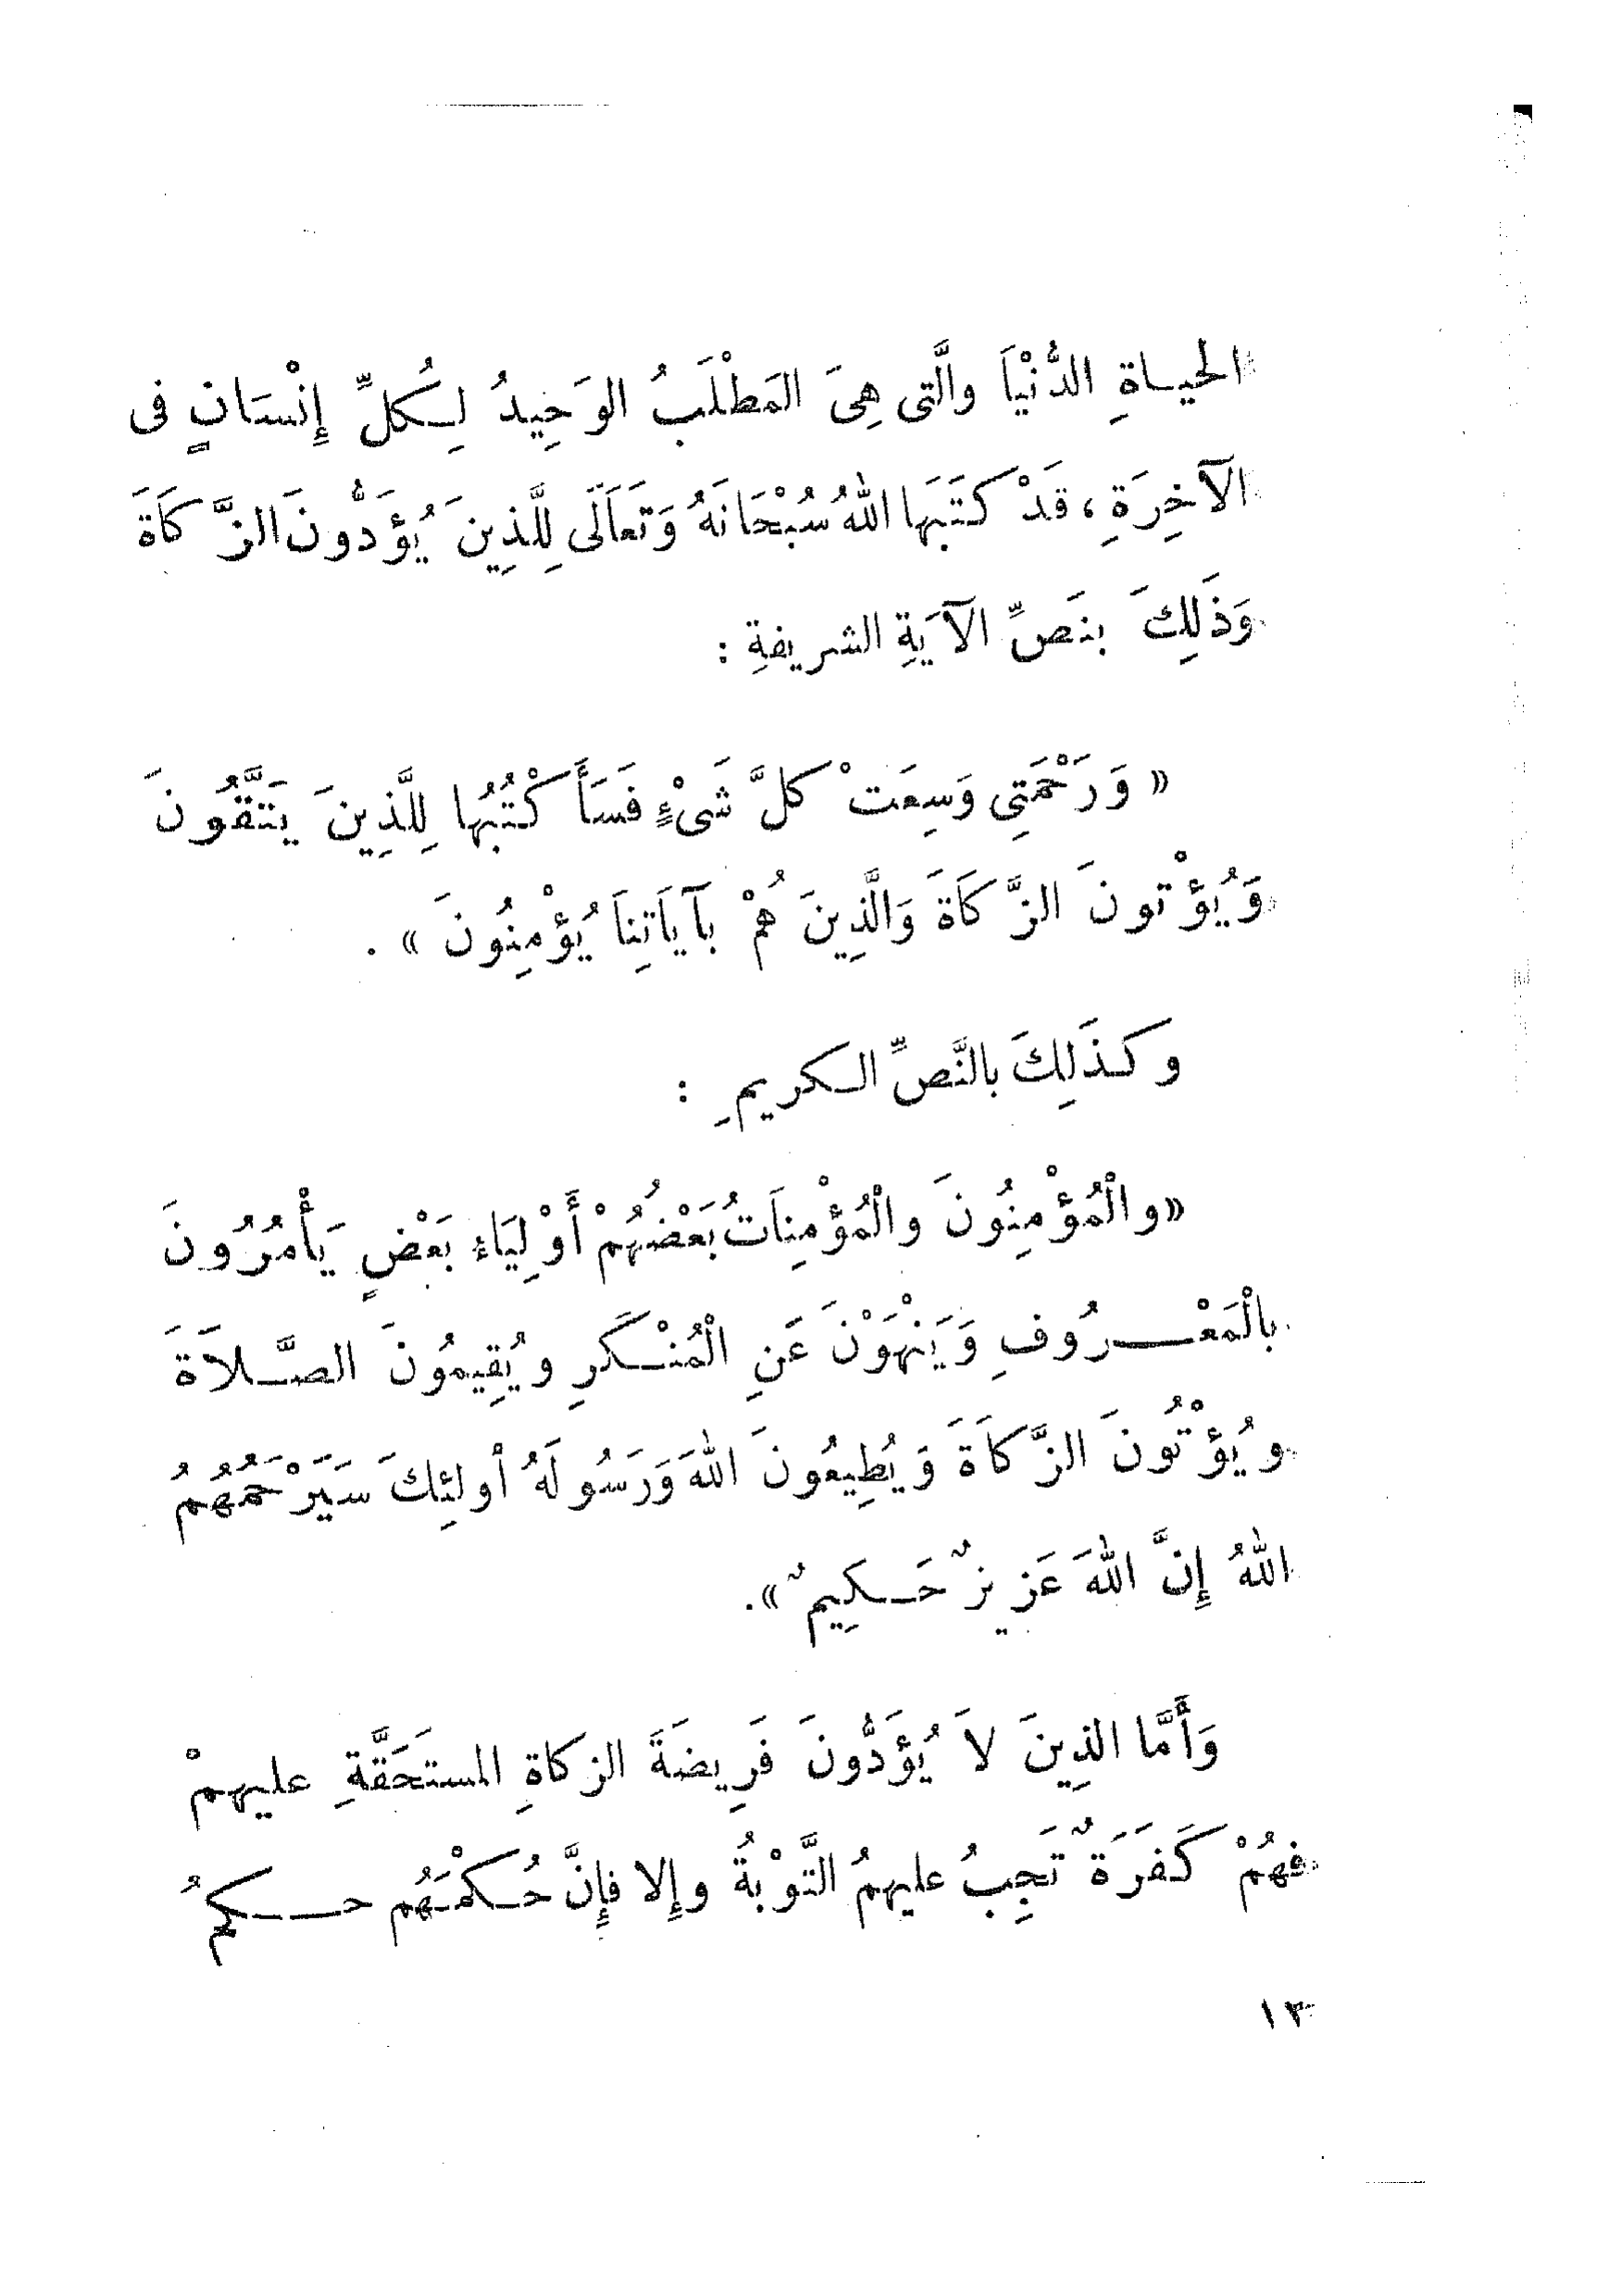 الحيـاةِ الدُّنْيَا والَّتى هِىَ المَطْلَبُ الوَحِيدُ لِـكُلِّ إِنْسَانٍ فى
الآخِرَةِ ، قَدْ كَتَبَها اللهُ سُبْحَانَهُ وَتَعَالَى لِلَّذِينَ يُؤَدُّونَ الزَّكَاةَ
وَذَلِكَ بنَصِّ الآيَةِ الشريفةِ :
« وَرَحْمَتِى وَسِعَتْ كلَّ شَىْءٍ فَسَأَكْتُبُها لِلَّذِينَ يَتَّقُونَ
وَيُؤْتونَ الزَّكَاةَ وَالَّذِينَ هُمْ بآيَاتِنَا يُؤْمِنُونَ » .
وكَذَلِكَ بالنَّصِّ الـكريمِ :
«والْمُؤْمِنُونَ والْمُؤْمِنَاتُ بَعْضُهُمْ أَوْلِيَاء بَعْضٍ يَأْمُرُونَ
بالْمَعْـرُوفِ وَيَنْهَوْنَ عَنِ الْمُنْـكَرِ ويُقِيمُونَ الصَّـلَاةَ
ويُؤْتُونَ الزَّكَاةَ وَيُطِيعُونَ اللهَ وَرَسُولَهُ أولئِكَ سَيَرْحَمُهُمُ
اللهُ إِنَّ اللهَ عَزيزٌ حَـكِيمٌ».
وَأَمَّا الذِينَ لَا يُؤَدُّونَ فَرِيضَةَ الزكاةِ المستَحَقَّةِ عليهمْ
فهُمْ كَفَرَةٌ تَجِبُ عليهمُ التَّوْبةُ وإلا فإِنَّ حُـكْمَهُم حـكمُ
١٣